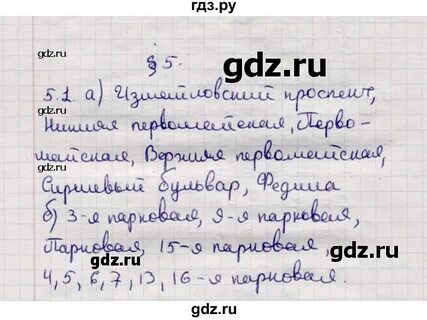 гдз.ру
gdz.ru
§ 5.
gdz.ru
5.1. а) Измайловский проспект,
Нижняя первомайская, Перво-
майская, Верхняя первомайская,
Сиреневый бульвар, Федина
б) 3-я парковая, 9-я парковая,
Парковая, 15-я парковая,
gdz.ru
gdz.ru
4, 5, 6, 7, 13, 16-я парковая.
gdz.ru